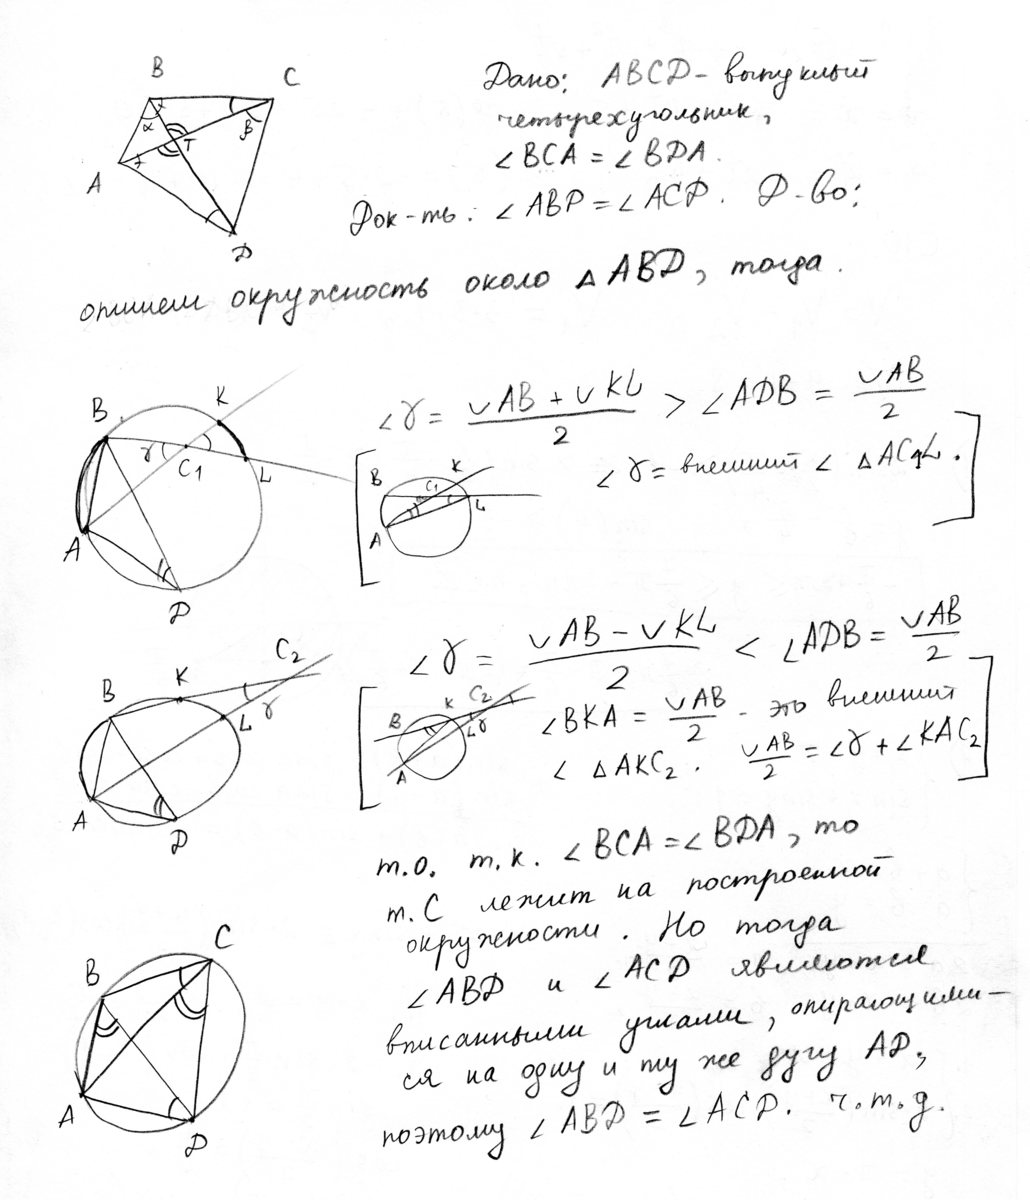 B
C
α
β
T
A
D
Дано: ABCD – выпуклый
четырехугольник,
∠BCA = ∠BDA.
Док-ть: ∠ABD = ∠ACD. Д-во:
опишем окружность около △ABD, тогда.
B
K
γ
C₁
L
A
D
∠γ = (∪AB + ∪KL)/2 > ∠ADB = ∪AB/2
B
K
C₁
L
A
∠γ = внешний ∠ △AC₁L.
B
K
C₂
L
γ
A
D
∠γ = (∪AB – ∪KL)/2 < ∠ADB = ∪AB/2
B
K
C₂
L
γ
A
∠BKA = ∪AB/2 - это внешний
∠ △AKC₂. ∪AB/2 = ∠γ + ∠KAC₂
т.о. т.к. ∠BCA = ∠BDA, то
т. C лежит на построенной
окружности. Но тогда
∠ABD и ∠ACD являются
вписанными углами, опирающими-
ся на одну и ту же дугу AD,
поэтому ∠ABD = ∠ACD. ч.т.д.
B
C
A
D